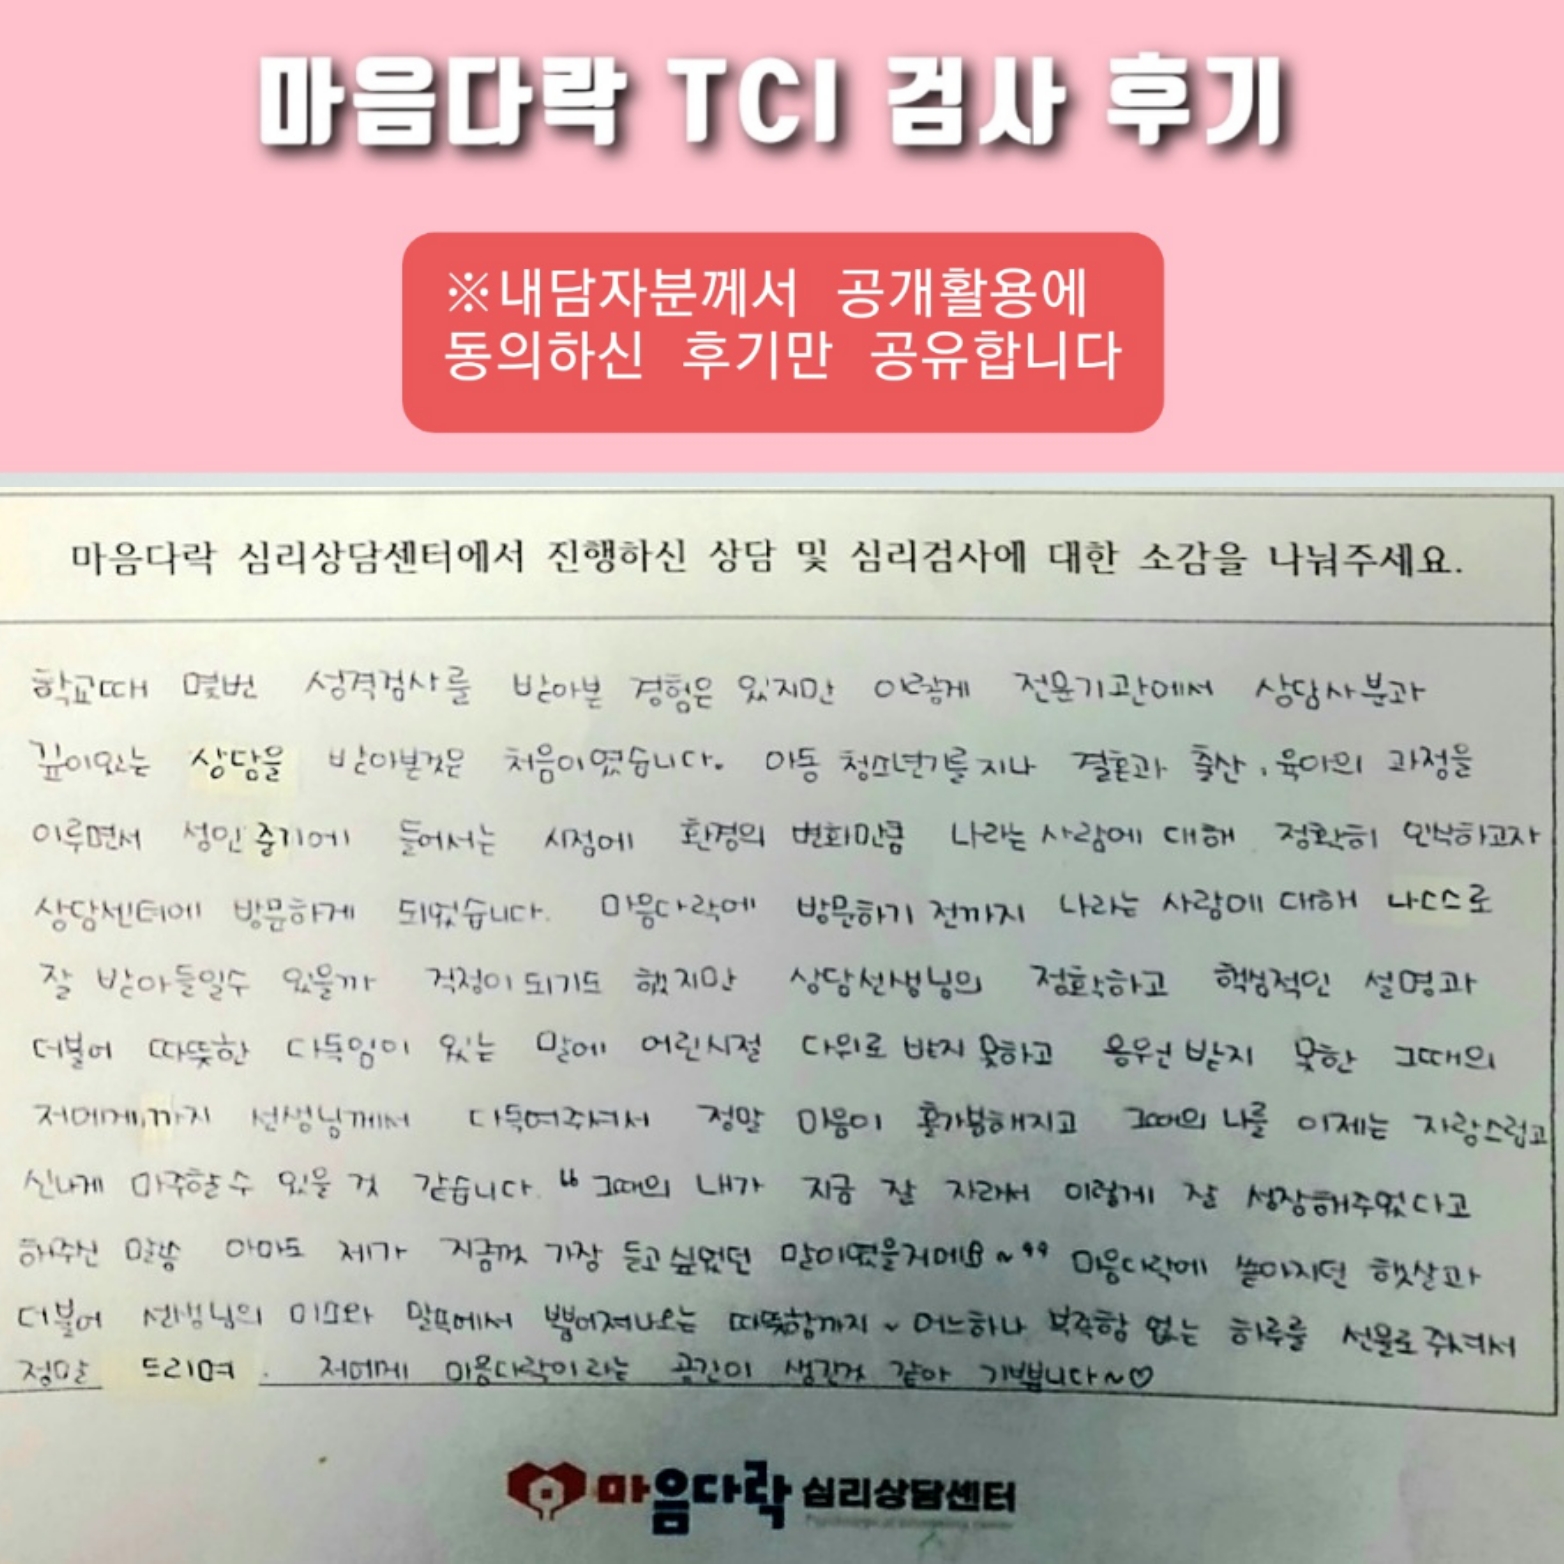 마음다락 TCI 검사 후기
※내담자분께서 공개활용에
동의하신 후기만 공유합니다
마음다락 심리상담센터에서 진행하신 상담 및 심리검사에 대한 소감을 나눠주세요.
학교때 몇번 성격검사를 받아본 경험은 있지만 이렇게 전문기관에서 상담사분과
깊이있는 상담을 받아본것은 처음이였습니다. 아동 청소년기를 지나 결혼과 출산, 육아의 과정을
이루면서 성인중기에 들어서는 시점에 환경의 변화만큼 나라는 사람에 대해 정확히 인식하고자
상담센터에 방문하게 되었습니다. 마음다락에 방문하기 전까지 나라는 사람에 대해 나스스로
잘 받아들일수 있을까 걱정이 되기도 했지만 상담선생님의 정확하고 핵심적인 설명과
더불어 따뜻한 다독임이 있는 말에 어린시절 다위로 받지 못하고 응원 받지 못한 그때의
저에게까지 선생님께서 다독여주셔서 정말 마음이 홀가분해지고 그때의 나를 이제는 자랑스럽고
신나게 마주할 수 있을 것 같습니다. "그때의 내가 지금 잘 자라서 이렇게 잘 성장해주었다고
해주신 말씀 아마도 제가 지금껏 가장 듣고 싶었던 말이였을거예요~" 마음다락에 쏟아지던 햇살과
더불어 선생님의 미소와 말씀에서 뿜어져나오는 따뜻함까지~ 어느하나 부족함 없는 하루를 선물로 주셔서
정말 드리며. 저에게 마음다락이라는 공간이 생긴것 같아 기쁩니다~♡
마음다락 심리상담센터